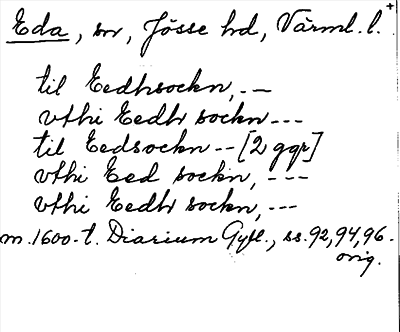 Eda, sn, Jösse hd, Värml. l.+
til Eedhsockn, --
vthi Eedh sockn ---
til Eedsockn -- [2 ggr]
vthi Eed sockn, ---
vthi Eedh sockn, ---
m. 1600-t. Diarium Gyll., ss. 92, 94, 96.
orig.